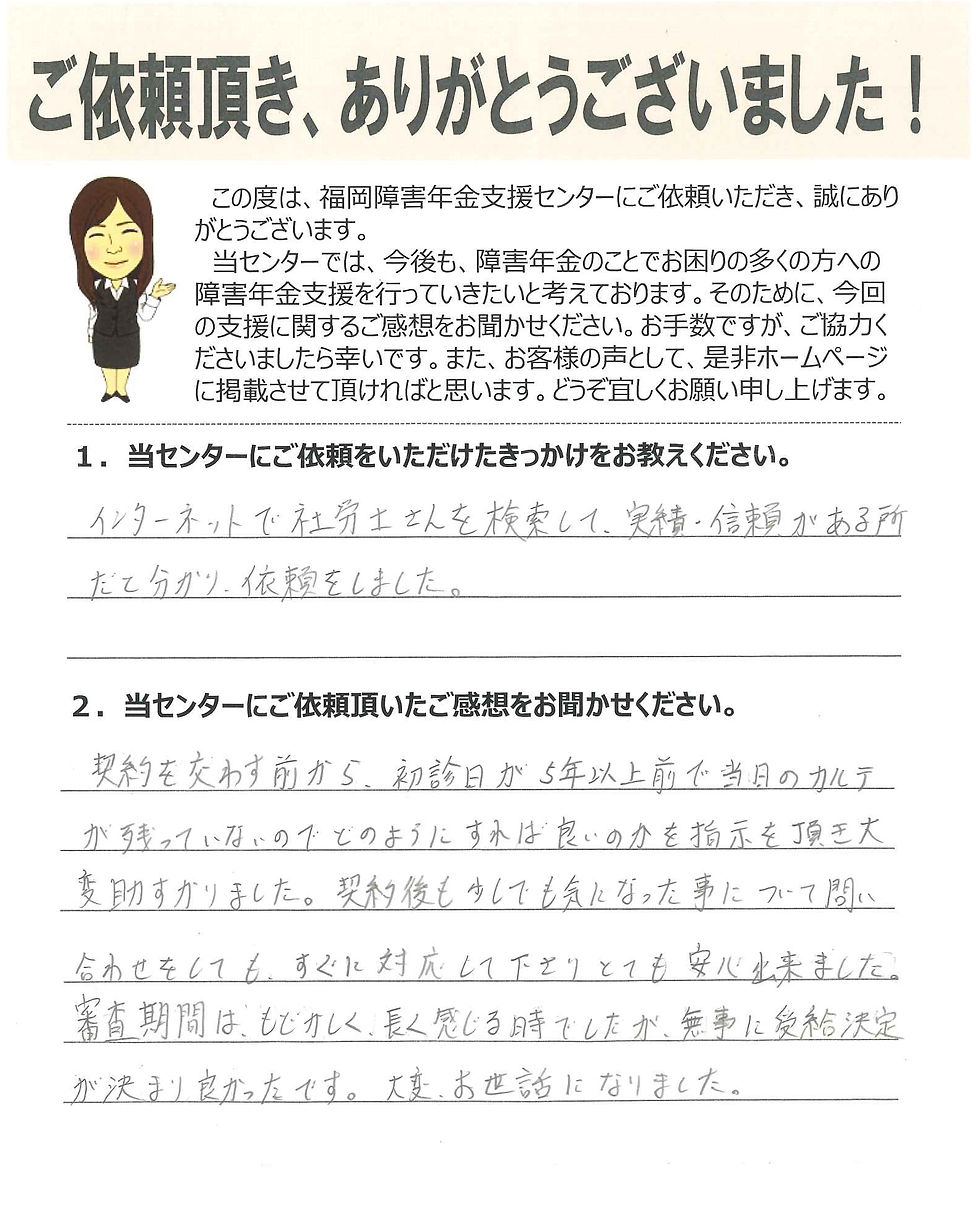 ご依頼頂き、ありがとうございました!
この度は、福岡障害年金支援センターにご依頼いただき、誠にあり
がとうございます。
当センターでは、今後も、障害年金のことでお困りの多くの方への
障害年金支援を行っていきたいと考えております。そのために、今回
の支援に関するご感想をお聞かせください。お手数ですが、ご協力く
ださいましたら幸いです。また、お客様の声として、是非ホームページ
に掲載させて頂ければと思います。どうぞ宜しくお願い申し上げます。
1.当センターにご依頼をいただけたきっかけをお教えください。
インターネットで社労士さんを検索して、実績・信頼がある所
だと分かり、依頼をしました。
2.当センターにご依頼頂いたご感想をお聞かせください。
契約を交わす前から、初診日が5年以上前で当日のカルテ
が残っていないのでどのようにすれば良いのかを指示を頂き大
変助すかりました。契約後も少しでも気になった事について問い
合わせをしても、すぐに対応して下さりとても安心出来ました。
審査期間は、もどかしく、長く感じる時でしたが、無事に受給決定
が決まり良かったです。大変、お世話になりました。